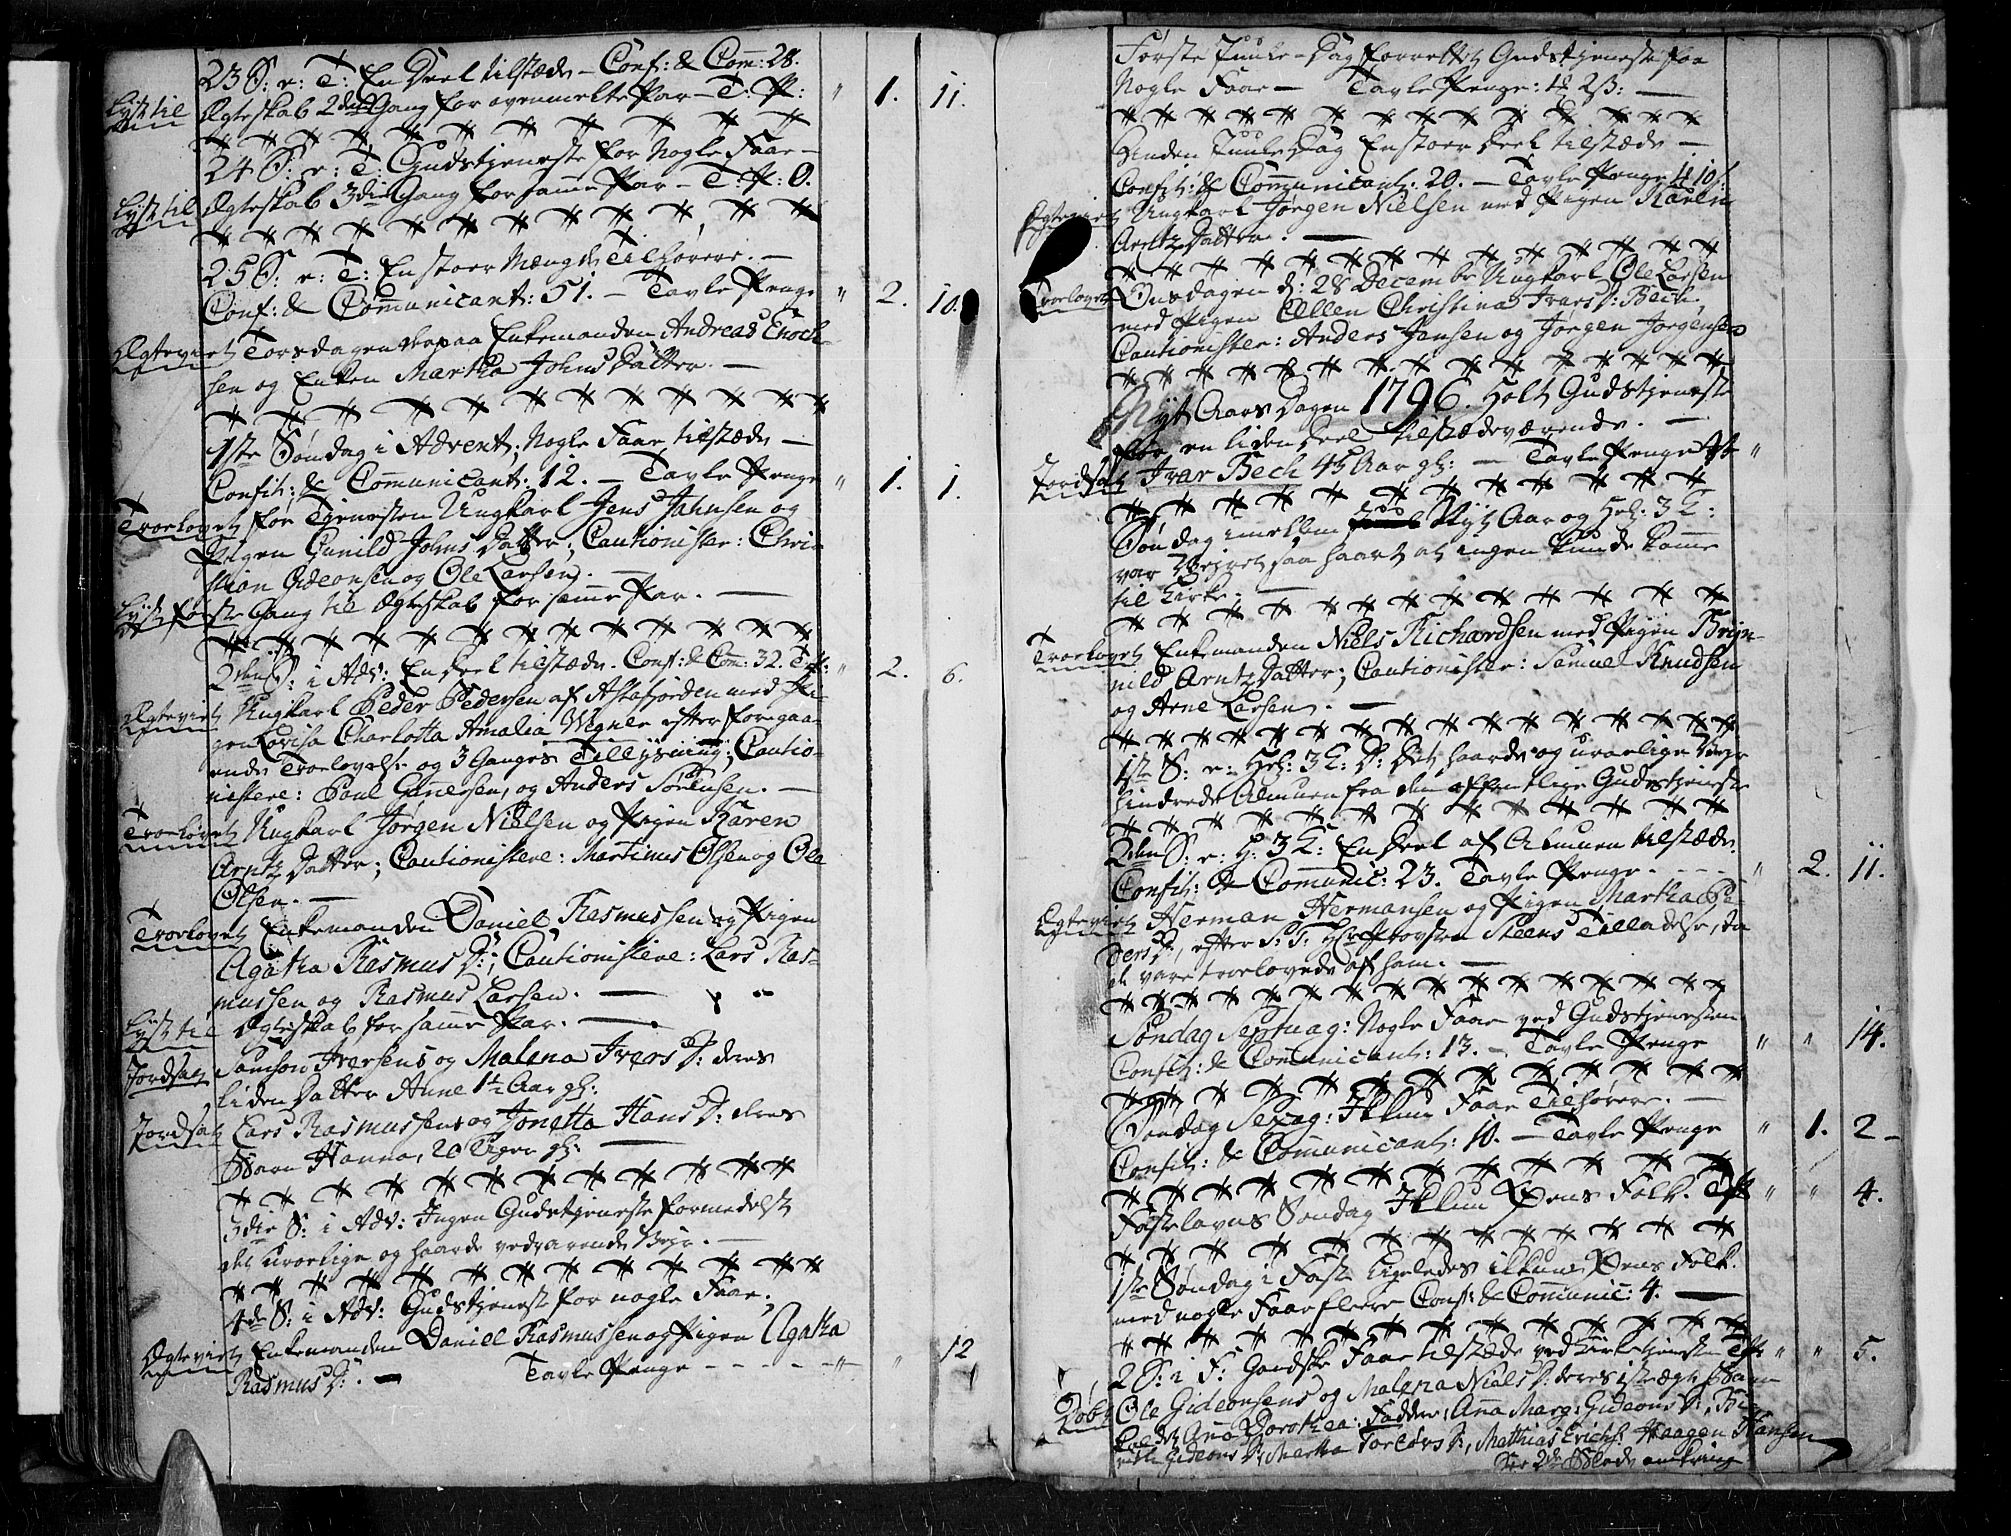 23 S: e: T: En Deel tilstæde – Conf: & Com: 28.
Lyst til Ægteskab 2den Gang for ovenmelte Par – T: P: " 1. 11.
24 S: e: T: Gudstjeneste for Nogle Faae –
Lyst til Ægteskab 3die Gang for samme Par – T: P: 0.
25 S: e: T: En stoer Mængde Tilhørere. –
Conf: & Communicant: 51. – Tavle Penge " 2. 10.
Ægteviet Torsdagen derpaa Enkemanden Andreas Enoch-
sen og Enken Martha Johns Datter. –
1ste Søndag i Advent; Nogle Faae tilstæde –
Confit: & Communicant: 12. – Tavle Penge " 1. 1.
Troelovet før Tjenesten Ungkarl Jens Jahnsen og
Pigen Gunild Johns Datter; Cautionister: Chri-
stian Gideonsen og Ole Larsen. –
Lyst første Gang til Ægteskab for samme Par. –
2den S: i Adv: En Deel tilstæde. Conf: & Com: 32. T: P: " 2. 6.
Ægteviet Ungkarl Peder Pedersen af Astafjorden med Pi-
gen Lovisa Charlotta Amalia Wegner efter foregaa-
ende Troelovelse og 3 Ganges Tillysning; Cautio-
nistere: Poul Gunersen, og Anders Sørensen. –
Troelovet Ungkarl Jørgen Nielsen og Pigen Karen
Arntz Datter; Cautionistere: Martinus Olsen og Ole
Olsen. –
Troelovet Enkemanden Daniel Rasmussen og Pigen
Agatha Rasmus D:; Cautionistere: Lars Ras-
mussen og Rasmus Larsen. –
Lyst til Ægteskab for samme Par. –
Jordsat Samson Iversens og Malena Ivers D: deres
liden Datter Anne 1½ Aar gl:
Jordsat Lars Rasmussens og Jonetta Hans D: deres
Barn Hanna, 20 Uger gl: –
3die S: i Adv: Ingen Gudstjeneste formedelst
det uroelige og haarde vedvarende Vejr. –
4de S: i Adv: Gudstjeneste for nogle Faae.
Ægteviet Enkemanden Daniel Rasmussen og Pigen Agatha
Rasmus D: – Tavle Penge - - - - - " " 12
Første Juule-Dag forrettet Gudstjeneste for
Nogle Faae – Tavle Penge: 2ß: –
Anden Juule Dag En stoer Deel tilstæde –
Confit: & Communicant: 29. – Tavle Penge 10ß
Ægteviet Ungkarl Jørgen Nielsen med Pigen Karen
Arntz Datter. –
Troelovet Onsdagen d: 28 Decembr Ungkarl Ole Larsen
med Pigen Ellen Christina Ivars D: Bech,
Cautionister: Anders Hansen og Jørgen Jørgensen
Nyt Aars Dagen 1796. Holt Gudstjeneste
for en liden Deel tilstædeværende. –
Jordsat Ivar Bech 45 Aar gl: – Tavle Penge "
Søndag imellem Nyt Aar og Hel: 3 K:
var Vejret saa haart at ingen kunde komme
til Kirke. –
Troelovet Enkemanden Niels Richardsen med Pigen Bryn-
nild Arntz Datter; Cautionister: Samuel Knudsen
og Arne Larsen. –
1ste S: e: Hel: 3 K: D: Det haarde og uroelige Vejr
hindrede Almuen fra den offentlige Gudstjeneste
2den S: e: H: 3 K: En Deel af Almuen tilstæde.
Confit: & Communic: 23. Tavle Penge. - - - " 2. 11.
Ægteviet Herman Hermansen og Pigen Martha Pe-
ders D:, efter S: T: Hr Provsten Steens Tilladelse, da
de vare troelovede af ham. –
Søndag Septuag: Nogle Faae ved Gudstjenesten
Confit: & Communicant: 13. – Tavle Penge " " 14.
Søndag Sexag: Ikkun Faae Tilhørere. –
Confit: & Communicant: 10. – Tavle Penge " 1. 2 –
Fastelavns Søndag Ikkun Øens Folk. T: P: " " 4.
1ste Søndag i Faste Ligeledes ikkun Øens Folk.
med nogle Faae fleere Conf: & Communic: 4. –
2 S: i F: Gandske Faae tilstæde ved Kirketjenesten T: P: " " 5.
Døbt Ole Gideonsens og Malena Niels D: deres 1ste ægte Barn
kaldet Ana Dorothea: Faddere: Ana Marg: Gideons D:, Bi-
rith Gideons D: Martha Torlørs D:, Matthias Erichs: Haagen Hansen
See 2det Blad omkring